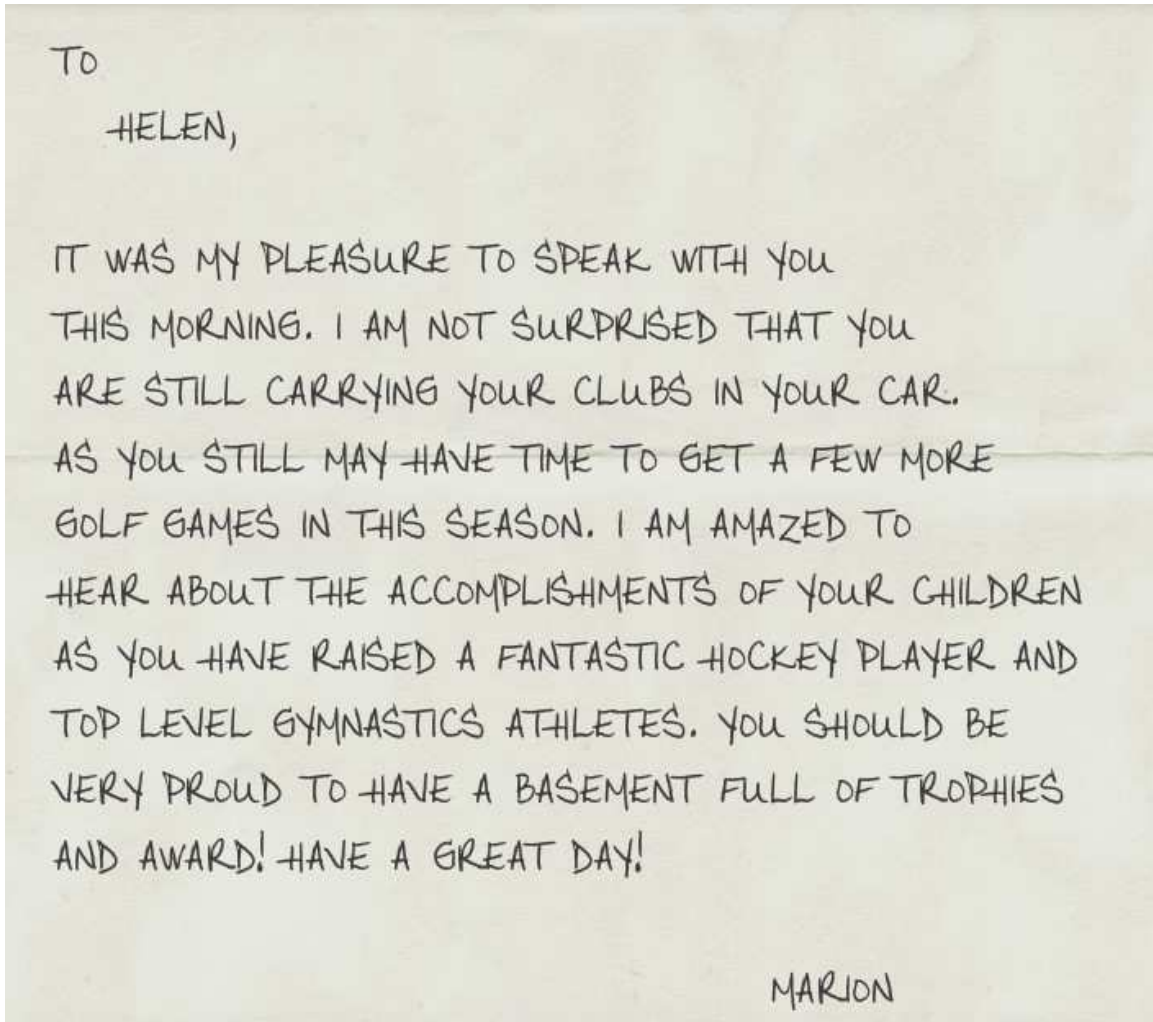 TO
HELEN,
IT WAS MY PLEASURE TO SPEAK WITH YOU
THIS MORNING. I AM NOT SURPRISED THAT YOU
ARE STILL CARRYING YOUR CLUBS IN YOUR CAR.
AS YOU STILL MAY HAVE TIME TO GET A FEW MORE
GOLF GAMES IN THIS SEASON. I AM AMAZED TO
HEAR ABOUT THE ACCOMPLISHMENTS OF YOUR CHILDREN
AS YOU HAVE RAISED A FANTASTIC HOCKEY PLAYER AND
TOP LEVEL GYMNASTICS ATHLETES. YOU SHOULD BE
VERY PROUD TO HAVE A BASEMENT FULL OF TROPHIES
AND AWARD! HAVE A GREAT DAY!
MARION